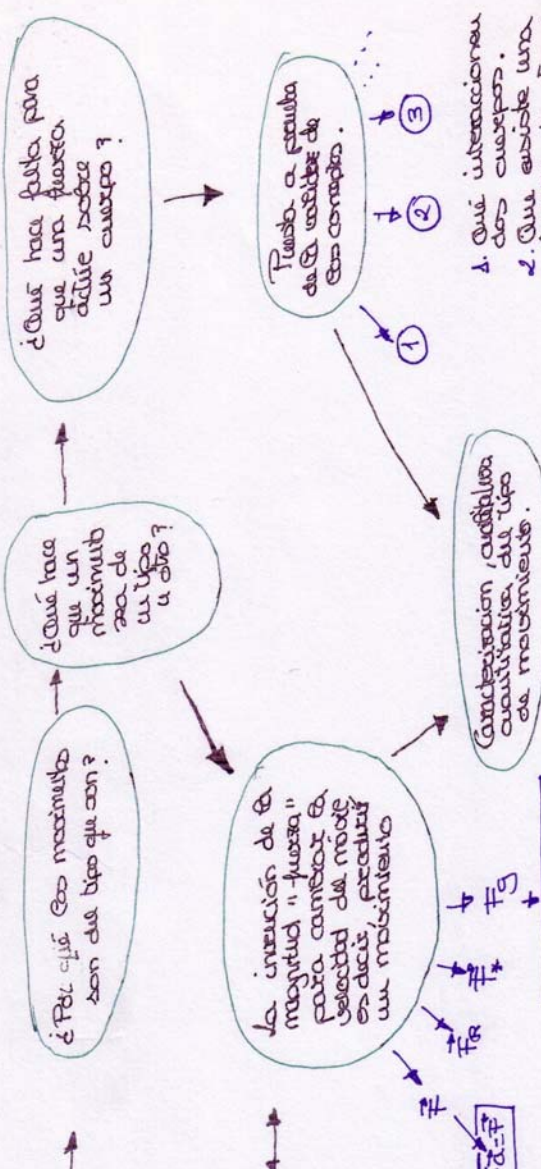 ¿Por qué los movimientos
son del tipo que son?
¿Qué hace
que un
movimiento
sea de
un tipo
u otro?
¿Qué hace falta para
que una fuerza
actúe sobre
un cuerpo?
La invención de la
magnitud "fuerza"
para cambiar la
velocidad del móvil,
es decir, producir
un movimiento
Puesta a prueba
de la validez de
los conceptos.
Caracterización cualitativa
cuantitativa del tipo
de movimiento.
F
F_R
F*
F_g
a=F
1
2
3
1. Qué interaccionen
dos cuerpos.
2. Que existe una